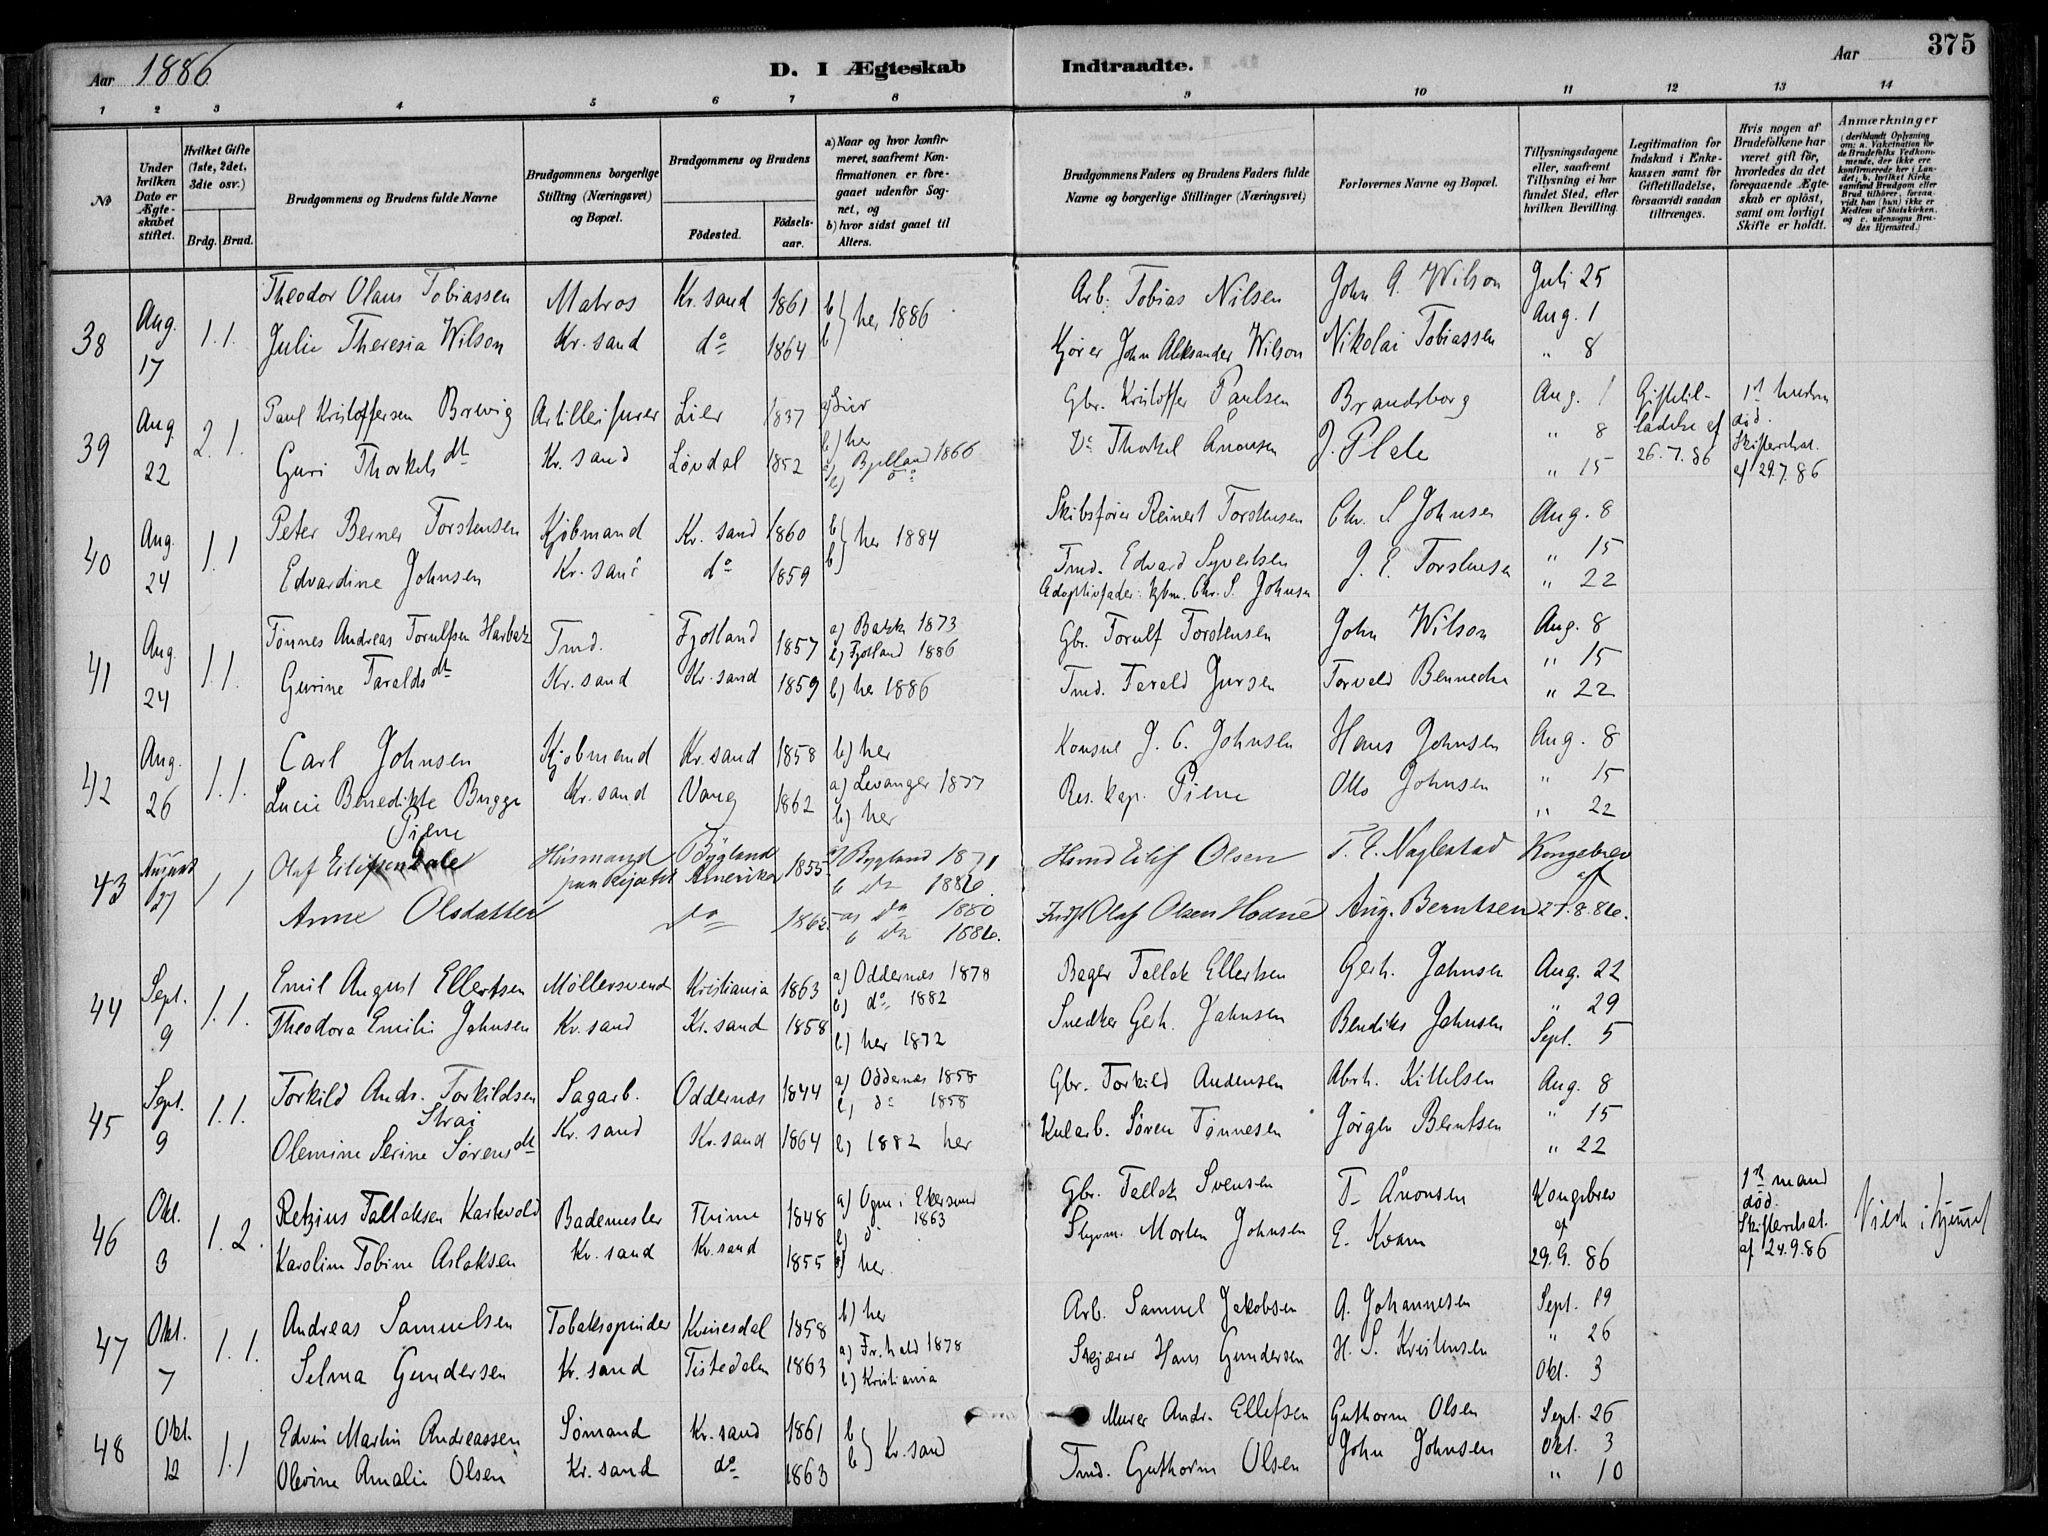 Aar 1886
D. I Ægteskab
Indtraadte.
Aar
375
1 2 3 4 5 6 7 8 9 10 11 12 13 14
No
Under hvilken Dato er Ægteskabet stiftet.
Hvilket Gifte (1ste, 2det, 3die osv.)
Brdg. Brud.
Brudgommens og Brudens fulde Navne
Brudgommens borgerlige Stilling (Næringsvei) og Bopæl.
Brudgommens og Brudens
Födested.
Födselsaar.
a) Naar og hvor konfirmeret, saafremt Konfirmationen er foregaaet udenfor Sognet, og
b) hvor sidst gaaet til Alters.
Brudgommens Faders og Brudens Faders fulde Navne og borgerlige Stillinger (Næringsvei)
Forlovernes Navne og Bopæl.
Tillysningsdagene eller, saafremt Tillysning ei har fundet Sted, efter hvilken Bevilling.
Legitimation for Indskud i Enkekassen samt for Giftetilladelse, forsaavidt saadan tiltrænges.
Hvis nogen af Brudefolkene har været gift för, hvorledes da det foregaaende Ægteskab er oplöst, samt om lovligt Skifte er holdt.
Anmærkninger
(deriblandt Oplysning om: a. Vakcination for de Brudefolks Vedkommende, der ikke ere konfirmerede her i Landet; b. hvilket Kirkesamfund Brudgom eller Brud tilhörer, forsaavidt han (hun) ikke er Medlem af Statskirken, og c. udensogns Brudes Hjemsted.)
38 Aug. 17 1. 1. Theodor Olaus Tobiassen Matros Kr. sand 1861 b) her 1886 Arb. Tobias Nilsen John A. Wilson Juli 25
Julie Theresia Wilson Kr. sand do 1864 b) Kjører John Aleksander Wilson Nikolai Tobiassen Aug. 1
" 8
39 Aug 22 2. 1. Paul Kristoffersen Brevig Lier 1837 a) Lier b) her Gbr. Kristoffer Paulsen Brandsborg Aug. 1 Giftetilladelse af 26.7.86 1st hustru død. Skifteattest. af 29.7.86
Guri Thorkelsdt Kr. sand Løvdal 1852 a) Bjelland 1866 b) do Do Thorkel Ånonsen J. Plate " 8
" 15
40 Aug. 24 1. 1 Peter Berner Torstensen Kjøbmand Kr. sand 1860 b) her 1884 Skibsfører Reinert Torstensen Chr. S Johnsen Aug. 8
Edvardine Johnsen Kr. sand do 1859 b) Tmd. Edvard Syvertsen J. E. Torstensen " 15
Adoptivfader: kjbm. Chr. S. Johnsen " 22
41 Aug. 24 1. 1. Tønnes Andreas Torulfsen Tmd. Fjotland 1857 a) Bakke 1873 b) Fjotland 1886 Gbr. Torulf Torstensen John Wilson Aug. 8
Gurine Taraldsdt Kr. sand Kr. sand 1859 b) her 1886 Tmd. Tarald Torvald Bennecke " 15
" 22
42 Aug. 26 1. 1. Carl Johnsen Kjøbmand Kr. sand 1858 b) her Konsul J. C. Johnsen Hans Johnsen Aug. 8
Lucie Benedikte Bugge Piene Kr. sand Vang 1862 a) Levanger 1877 b) her Res. kap. Piene Otto Johnsen " 15
" 22
43 August 27 1 1 Olaf Eilifsen Dale Husmand Bygland Amerika 1855 a) Bygland 1871 b do 1886. Husmd Eilif Olsen T. E. Naglestad Kongebrev af
Anne Olsdatter do 1862 a) do 1880 b do 1886. Olaf Olsen Hodne Aug. Berntsen 27.8.86.
44 Sept. 9 1. 1. Emil August Ellertsen Møllersvend Kristiania 1863 a) Oddernæs 1878 b) do 1882 Bager Tallak Ellertsen Gerh. Jahnsen Aug. 22
Theodora Emilie Jahnsen Kr. sand Kr. sand 1858 b) her 1872 Snedker Gerh. Jahnsen Bendiks Jahnsen " 29
Sept. 5
45 Sept. 9 1. 1. Torkild Andr. Torkildsen Strai Sagarb. Oddernæs 1844 a) Oddernæs 1858 b) do 1858 Gbr. Torkild Andersen Abrh. Kittelsen Aug. 8
Olemine Serine Sørensdt Kr. sand Kr. sand 1864 b) 1882 her Kularb. Søren Tønnesen Jørgen Berntsen " 15
" 22
46 Okt. 3 1. 2. Retzius Tallaksen Kartevold Bademester Thime 1848 a) Ogne i Ekersund 1863 b) do Gbr. Tallak Svensen T. Ånonsen Kongebrev af 29.9.86 1st mand død. Skifteattest. af 24.9.86 Viede i hjemmet
Karoline Tobine Aslaksen Kr. sand Kr. sand 1855 b) her. Styrm. Morten Johnsen E. Kvam
47 Okt. 7 1. 1. Andreas Samuelsen Tobakspinder Kvinesdal 1858 b) her Arb. Samuel Jakobsen A. Johannesen Sept. 19
Selma Gundersen Kr. sand Tistedalen 1863 a) Fr. hald 1878 b) Kristiania Skjærer Hans Gundersen H. S. Kristensen " 26
Okt. 3
48 Okt. 12 1. 1 Edvin Martin Andreassen Sømand Kr. sand 1861 b) Kr. sand Murer Andr. Ellefsen Guthorm Olsen Sept. 26
Olevine Amalie Olsen Kr. sand do 1863 b) Tmd. Guthorm Olsen John Johnsen Okt. 3
" 10